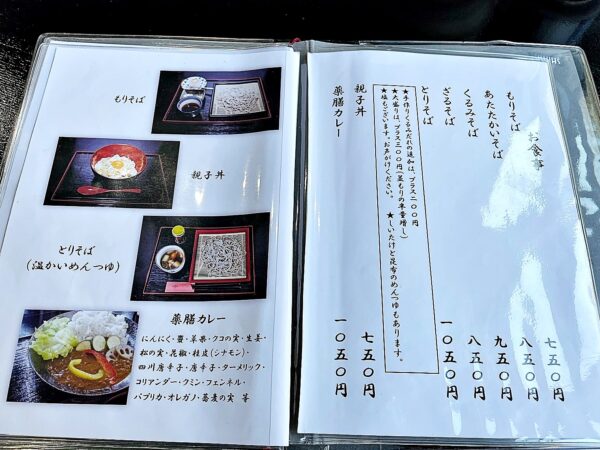 もりそば
親子丼
とりそば
(温かいめんつゆ)
薬膳カレー
にんにく・醬・草果・クコの実・生姜・
松の実・花椒・桂皮(シナモン)・
四川唐辛子・唐辛子・ターメリック・
コリアンダー・クミン・フェンネル・
パプリカ・オレガノ・蕎麦の実 等
お食事
もりそば 七五〇円
あたたかいそば 八五〇円
くるみそば 九五〇円
ざるそば 八五〇円
とりそば 一〇五〇円
★手作りくるみだれの追加は、プラス二〇〇円
★大盛りは、プラス三〇〇円(並もりの半量増し)
★塩もございます。お声がけください。 ★しいたけと昆布のめんつゆもあります。
親子丼 七五〇円
薬膳カレー 一〇五〇円